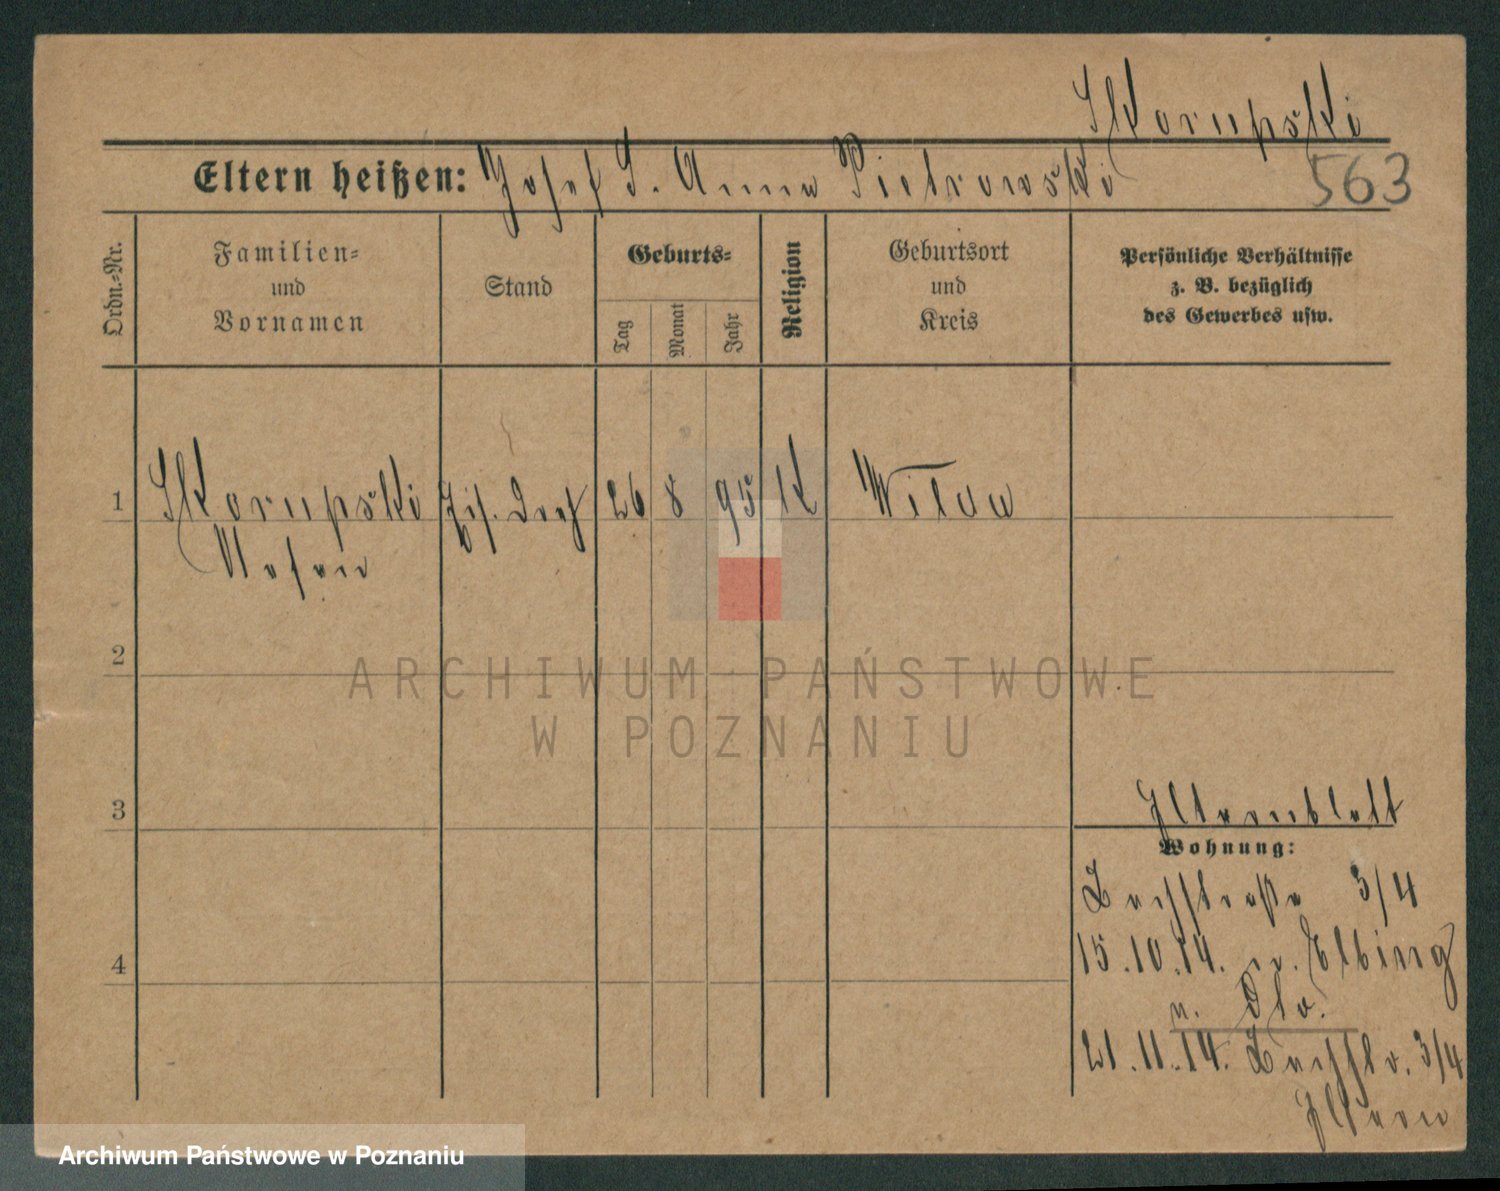 Skorupski
Eltern heißen: Josef S. Anna Pietrowski
563
Ordn.-Nr.
Familien-
und
Vornamen
Stand
Geburts-
Tag
Monat
Jahr
Religion
Geburtsort
und
Kreis
Persönliche Verhältnisse
z. B. bezüglich
des Gewerbes usw.
1 Skorupski 26 8 95 K Wilda
2
3
4
ARCHIWUM PAŃSTWOWE
W POZNANIU
Elternblatt
Wohnung:
Bachstraße 3/4
15.10.14. n. Elbing
21.11.14. Bachstr. 3/4
Eltern
Archiwum Państwowe w Poznaniu